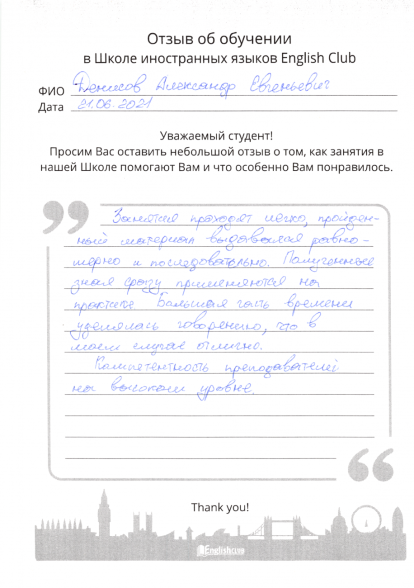 Отзыв об обучении
в Школе иностранных языков English Club
ФИО Денисов Александр Евгеньевич
Дата 21.06.2021
Уважаемый студент!
Просим Вас оставить небольшой отзыв о том, как занятия в
нашей Школе помогают Вам и что особенно Вам понравилось.
Занятия проходят легко, пройден-
ный материал выдавался равно-
мерно и последовательно. Полученные
зная сразу применяются на
практике. Большая часть времени
уделялась говорению, что в
моем случае отлично.
Компетентность преподавателей
на высоком уровне.
Thank you!
English Club